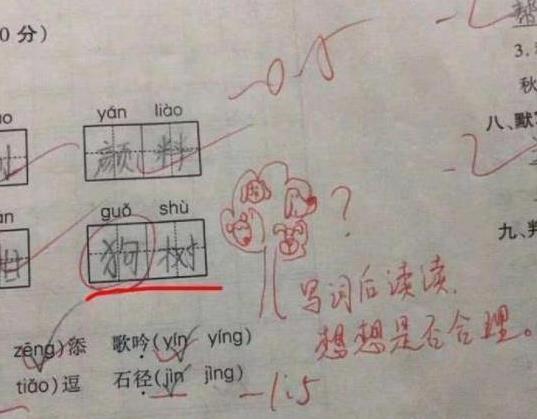 0 分)
yán liào
颜料
guǒ shù
狗树
?
写词后读读,
想想是否合理。
zēng)添 歌吟(yín yíng)
tiāo)逗 石径(jìn jìng)
-1.5
-0.5
帮
3.
秋
八、默
九、判